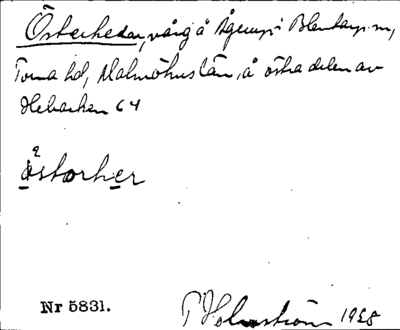 Österheden, vång å Ågerup i Blentarp sn,
Torna hd, Malmöhus län, å östra delen av
Hebacken 64
östorher
Nr 5831.
P Holmström 1928